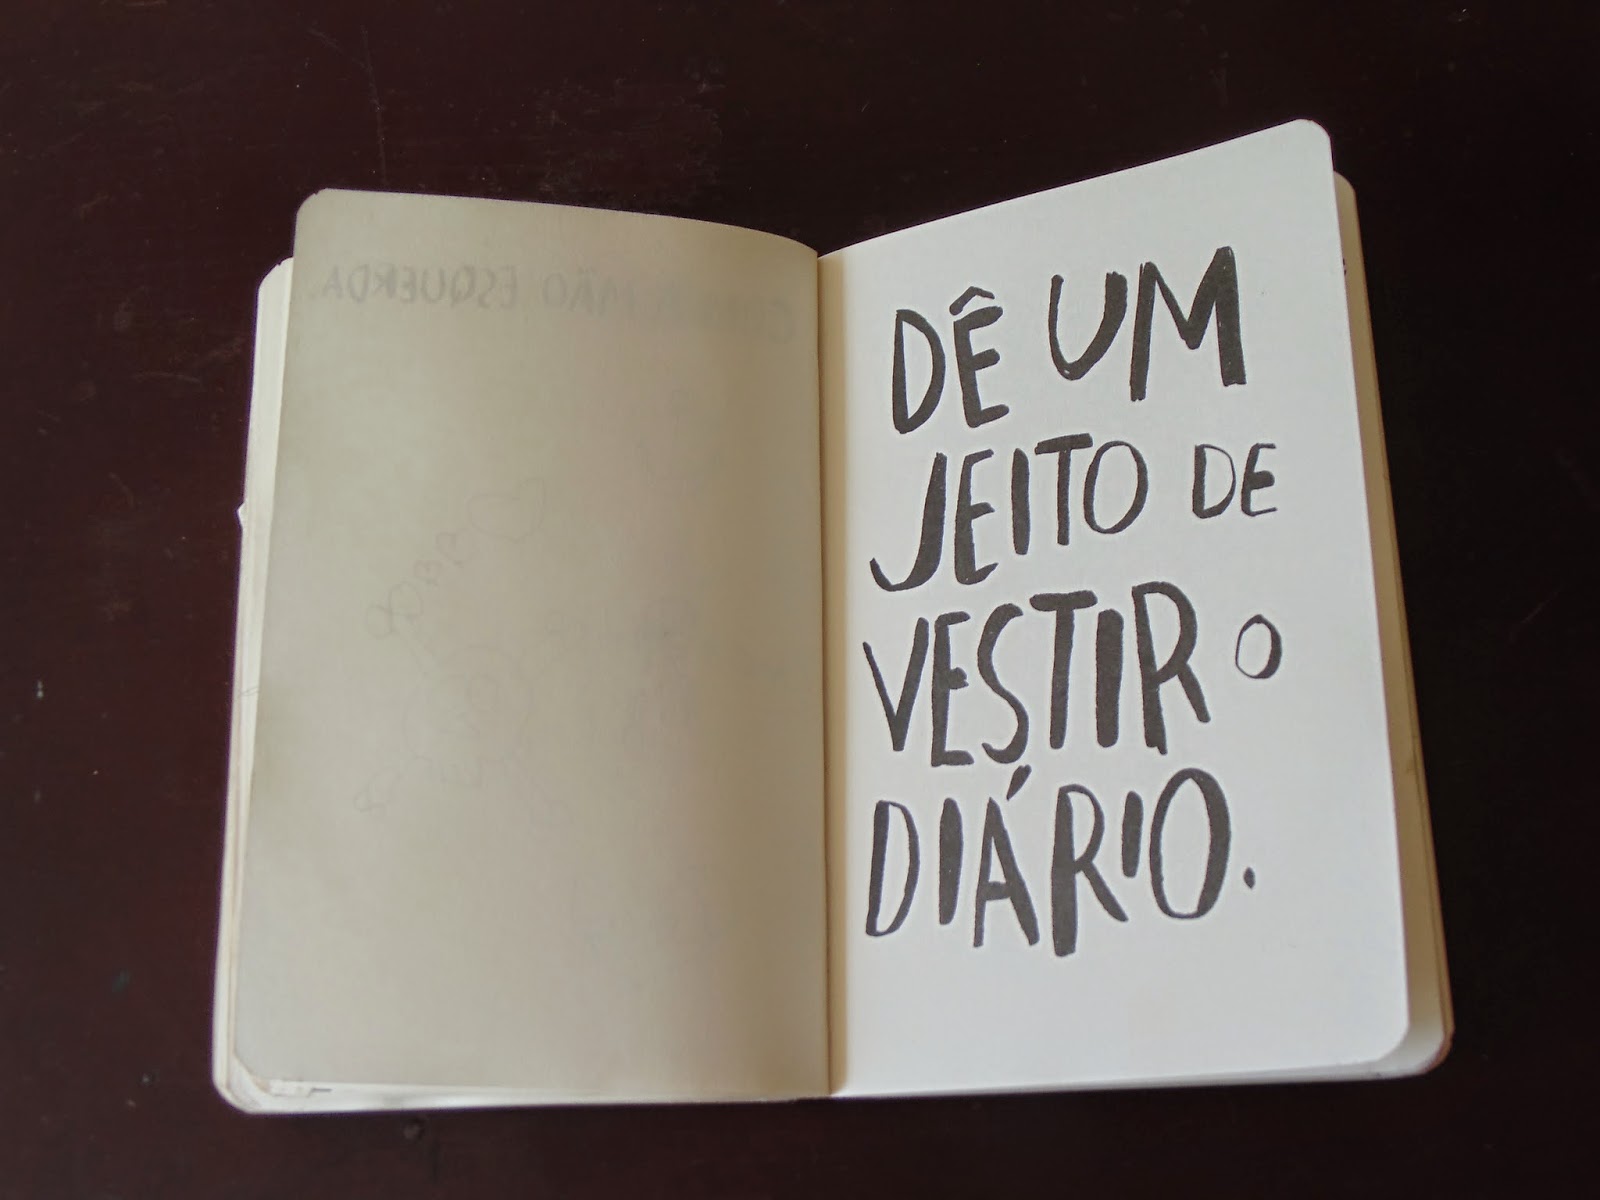 MÃO ESQUERDA.
DÊ UM
JEITO DE
VESTIR O
DIÁRIO.